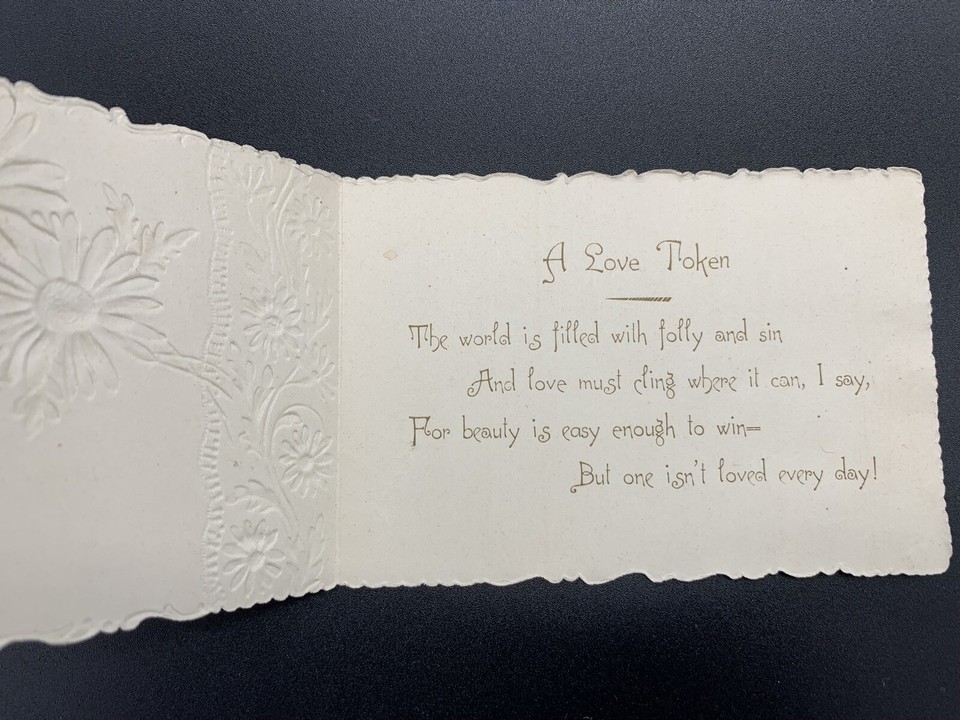 A Love Token
The world is filled with folly and sin
And love must cling where it can, I say,
For beauty is easy enough to win=
But one isn't loved every day!